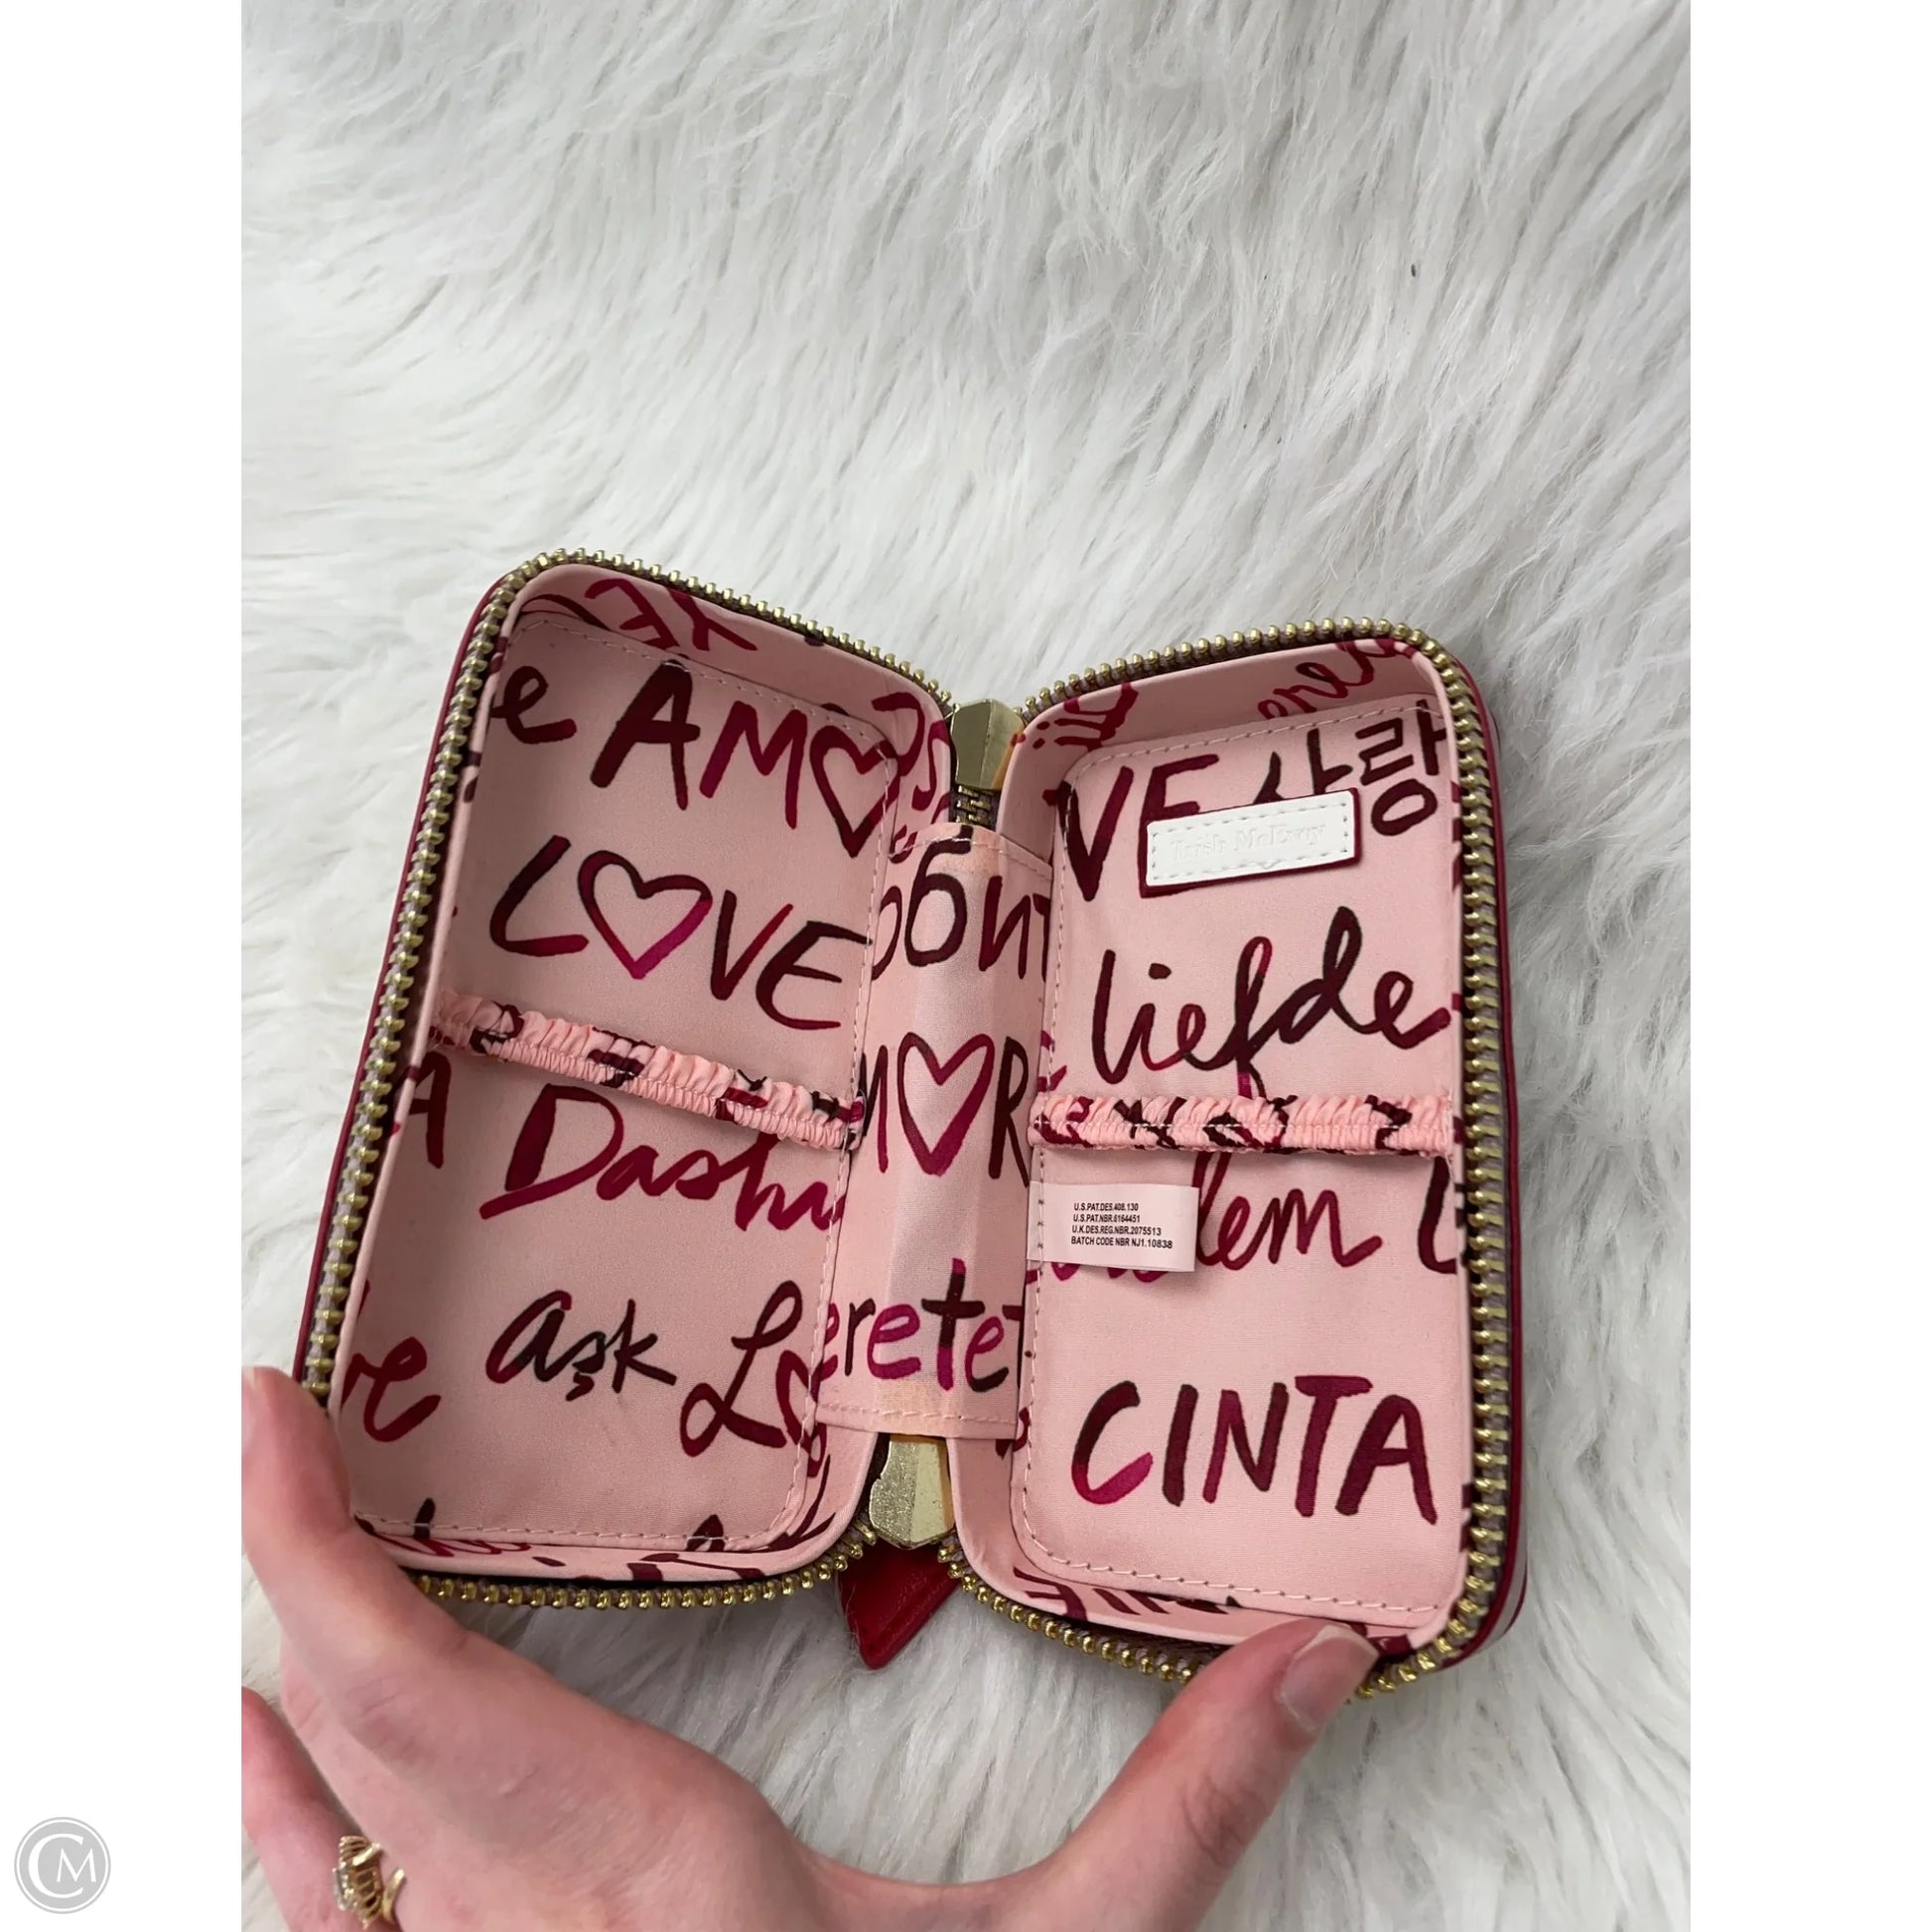 e AMO
LOVE
A
Dashu
ve aşk Lo
юбит
MORE
eretet
ove
VE 사랑
Trish McEvoy
liefde
U.S.PAT.DES.408.130
U.S.PAT.NBR.6164451
U.K.DES.REG.NBR.2075513
BATCH CODE NBR NJ1.10838
lem L
CINTA
CM